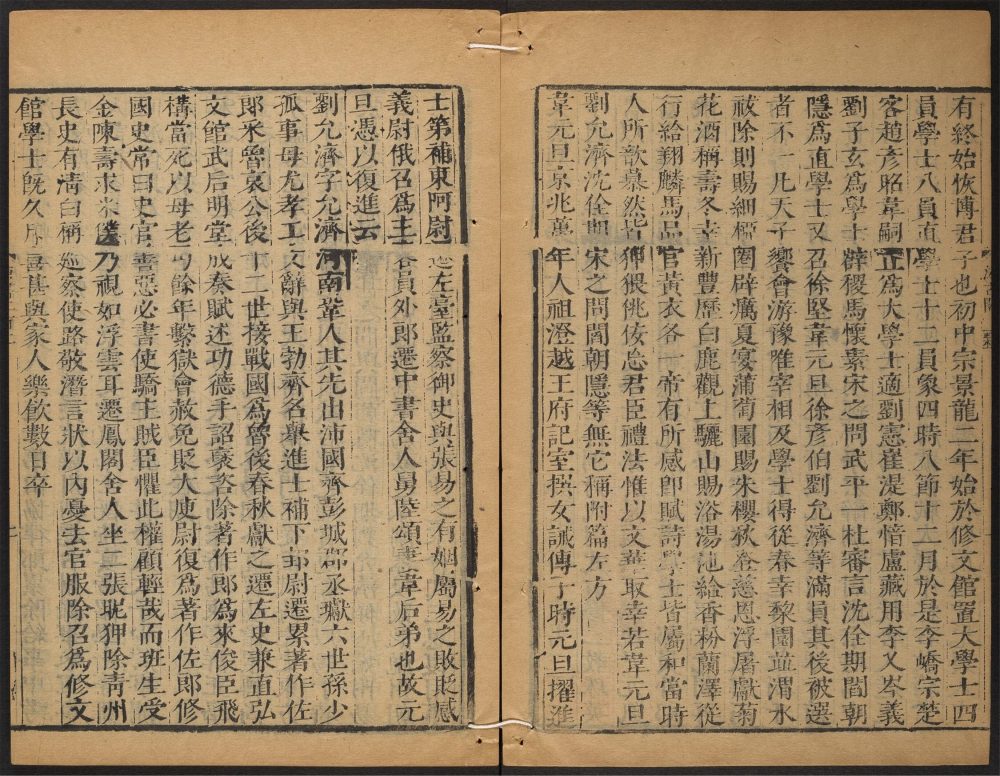 有終始恢博君子也初中宗景龍二年始於修文館置大學士四
員學士八員直學士十二員象四時八節十二月於是李嶠宗楚
客趙彥昭韋嗣立爲大學士適劉憲崔湜鄭愔盧藏用李乂岑羲
劉子玄爲學士薛稷馬懷素宋之問武平一杜審言沈佺期閻朝
隱爲直學士又召徐堅韋元旦徐彥伯劉允濟等滿員其後被選
者不一凡天子饗會游豫唯宰相及學士得從春幸棃園竝渭水
祓除則賜細桺圈辟癘夏宴蒲萄園賜朱櫻秋登慈恩浮屠獻菊
花酒稱壽冬幸新豐歷白鹿觀上驪山賜浴湯池給香粉蘭澤從
行給翔麟馬品官黃衣各一帝有所感卽賦詩學士皆屬和當時
人所歆慕然皆狎猥佻佞忘君臣禮法惟以文華取幸若韋元旦
劉允濟沈佺期宋之問閻朝隱等無它稱附篇左方
韋元旦京兆萬年人祖澄越王府記室撰女誡傳于時元旦擢進
士第補東阿尉遷左臺監察御史與張易之有姻屬易之敗貶感
義尉俄召爲主客員外郎遷中書舍人舅陸頌妻韋后弟也故元
旦憑以復進云
劉允濟字允濟河南鞏人其先出沛國齊彭城郡丞瓛六世孫少
孤事母尤孝工文辭與王勃齊名舉進士補下邽尉遷累著作佐
郎采魯哀公後十二世接戰國爲魯後春秋獻之遷左史兼直弘
文館武后明堂成奏賦述功德手詔襃咨除著作郎爲來俊臣飛
構當死以母老丐餘年繫獄會赦免貶大庾尉復爲著作佐郎修
國史常曰史官善惡必書使驕主賊臣懼此權顧輕哉而班生受
金陳壽求米僕乃視如浮雲耳遷鳳閣舍人坐二張昵狎除青州
長史有清白稱巡察使路敬潛言狀以內憂去官服除召爲修文
館學士旣久斥喜甚與家人樂飮數日卒